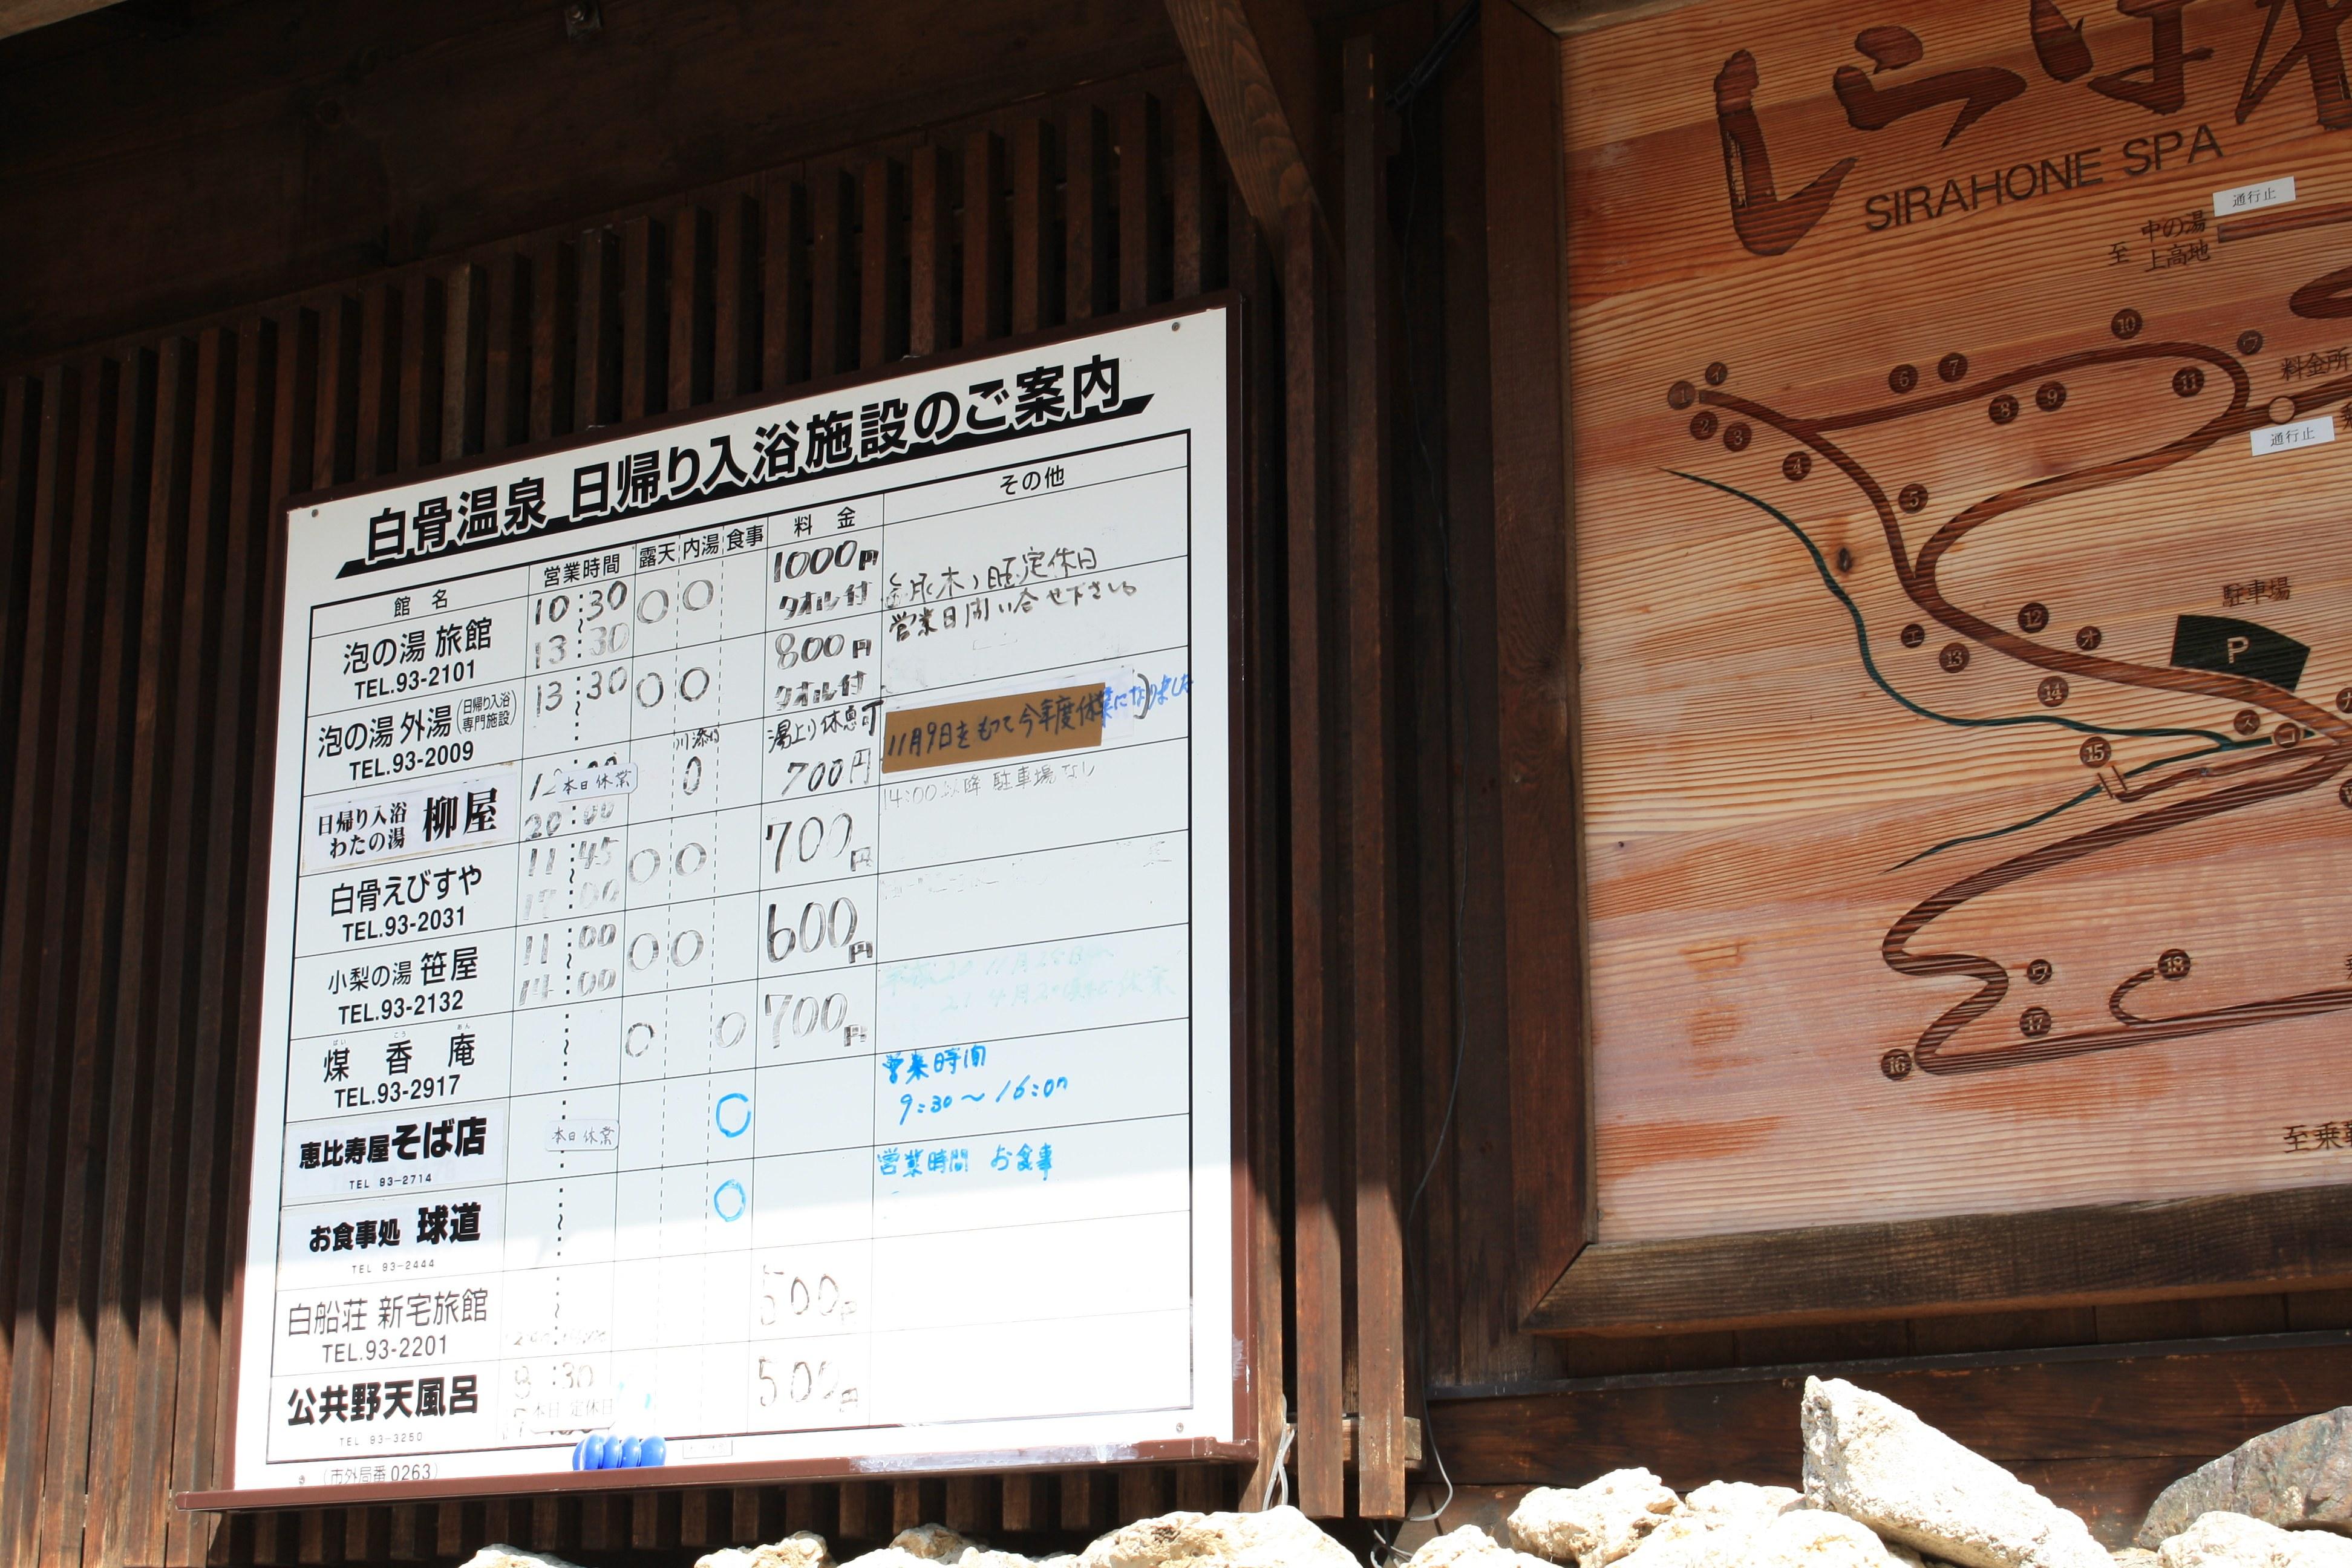 白骨温泉 日帰り入浴施設のご案内
館名 営業時間 露天 内湯 食事 料金 その他
泡の湯 旅館
TEL.93-2101
10:30
~
13:30
○ ○
1000円
タオル付
定休日
営業日問い合せ下さい
泡の湯 外湯 (日帰り入浴専門施設)
TEL.93-2009
13:30
○ ○
800円
タオル付
日帰り入浴
わたの湯 柳屋
本日休業
20:00
湯上り休息可
700円
11月9日をもって今年度休業になりました
14:00以降 駐車場なし
白骨えびすや
TEL.93-2031
11:45
~
17:00
○ ○
700円
小梨の湯 笹屋
TEL.93-2132
11:00
~
14:00
○ ○
600円
ばい こう あん
煤香庵
TEL.93-2917
~
○ ○
700円
恵比寿屋そば店
TEL 93-2714
本日休業
○
営業時間
9:30~16:00
お食事処 球道
TEL 93-2444
~
○
営業時間 お食事
白船荘 新宅旅館
TEL.93-2201
~
500円
公共野天風呂
TEL 93-3250
8:30
本日 定休日
500円
(市外局番0263)
しらほ
SIRAHONE SPA
通行止
至 中の湯
上高地
1 イ 2 3 4 5 6 7 8 9 10 11 ワ
料金所
通行止
駐車場
P
エ 12 13 オ 14 15 ス コ
16 17 ウ 18
至乗